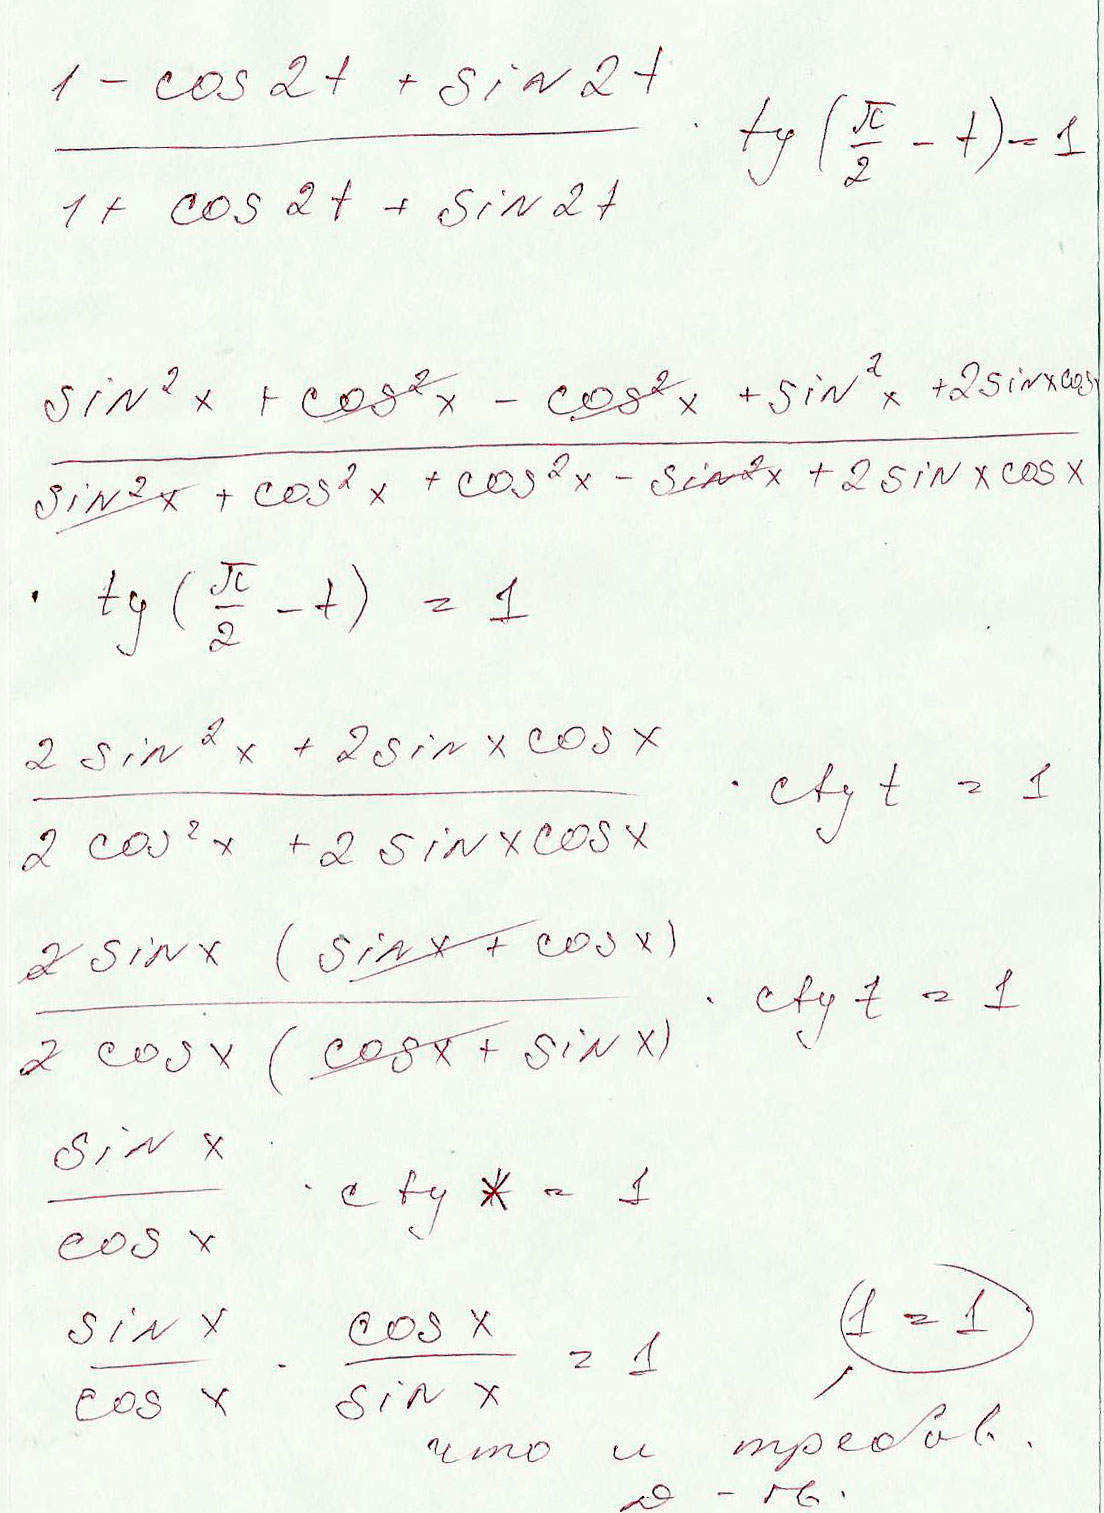 1 - cos 2t + sin 2t
· tg (π/2 - t) = 1
1 + cos 2t + sin 2t
sin²x + cos²x - cos²x + sin²x + 2sinxcosx
sin²x + cos²x + cos²x - sin²x + 2sinxcosx
· tg (π/2 - t) = 1
2 sin²x + 2sinxcosx
· ctg t = 1
2 cos²x + 2 sinxcosx
2 sinx (sinx + cosx)
· ctg t = 1
2 cosx (cosx + sinx)
sin x
· ctg x = 1
cos x
sin x / cos x · cos x / sin x = 1
1 = 1
что и требов.
д-ть.